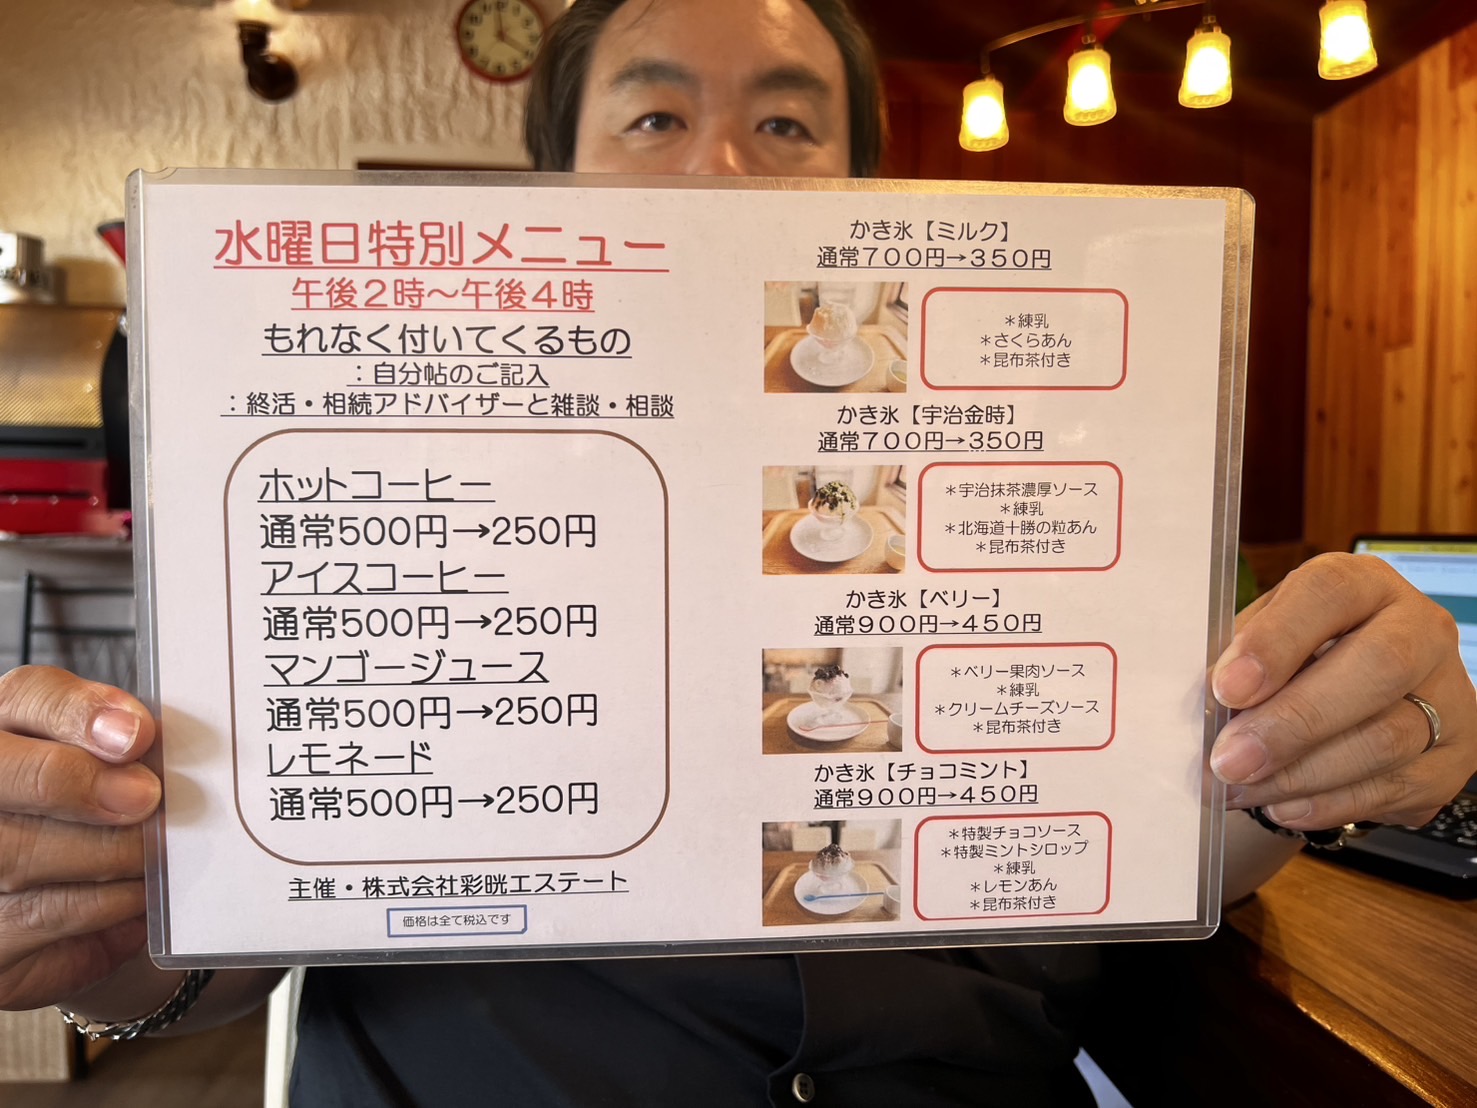 水曜日特別メニュー
午後２時～午後４時
もれなく付いてくるもの
：自分帖のご記入
：終活・相続アドバイザーと雑談・相談
ホットコーヒー
通常500円→250円
アイスコーヒー
通常500円→250円
マンゴージュース
通常500円→250円
レモネード
通常500円→250円
主催・株式会社彩晄エステート
価格は全て税込です
かき氷【ミルク】
通常７００円→３５０円
＊練乳
＊さくらあん
＊昆布茶付き
かき氷【宇治金時】
通常７００円→３５０円
＊宇治抹茶濃厚ソース
＊練乳
＊北海道十勝の粒あん
＊昆布茶付き
かき氷【ベリー】
通常９００円→４５０円
＊ベリー果肉ソース
＊練乳
＊クリームチーズソース
＊昆布茶付き
かき氷【チョコミント】
通常９００円→４５０円
＊特製チョコソース
＊特製ミントシロップ
＊練乳
＊レモンあん
＊昆布茶付き